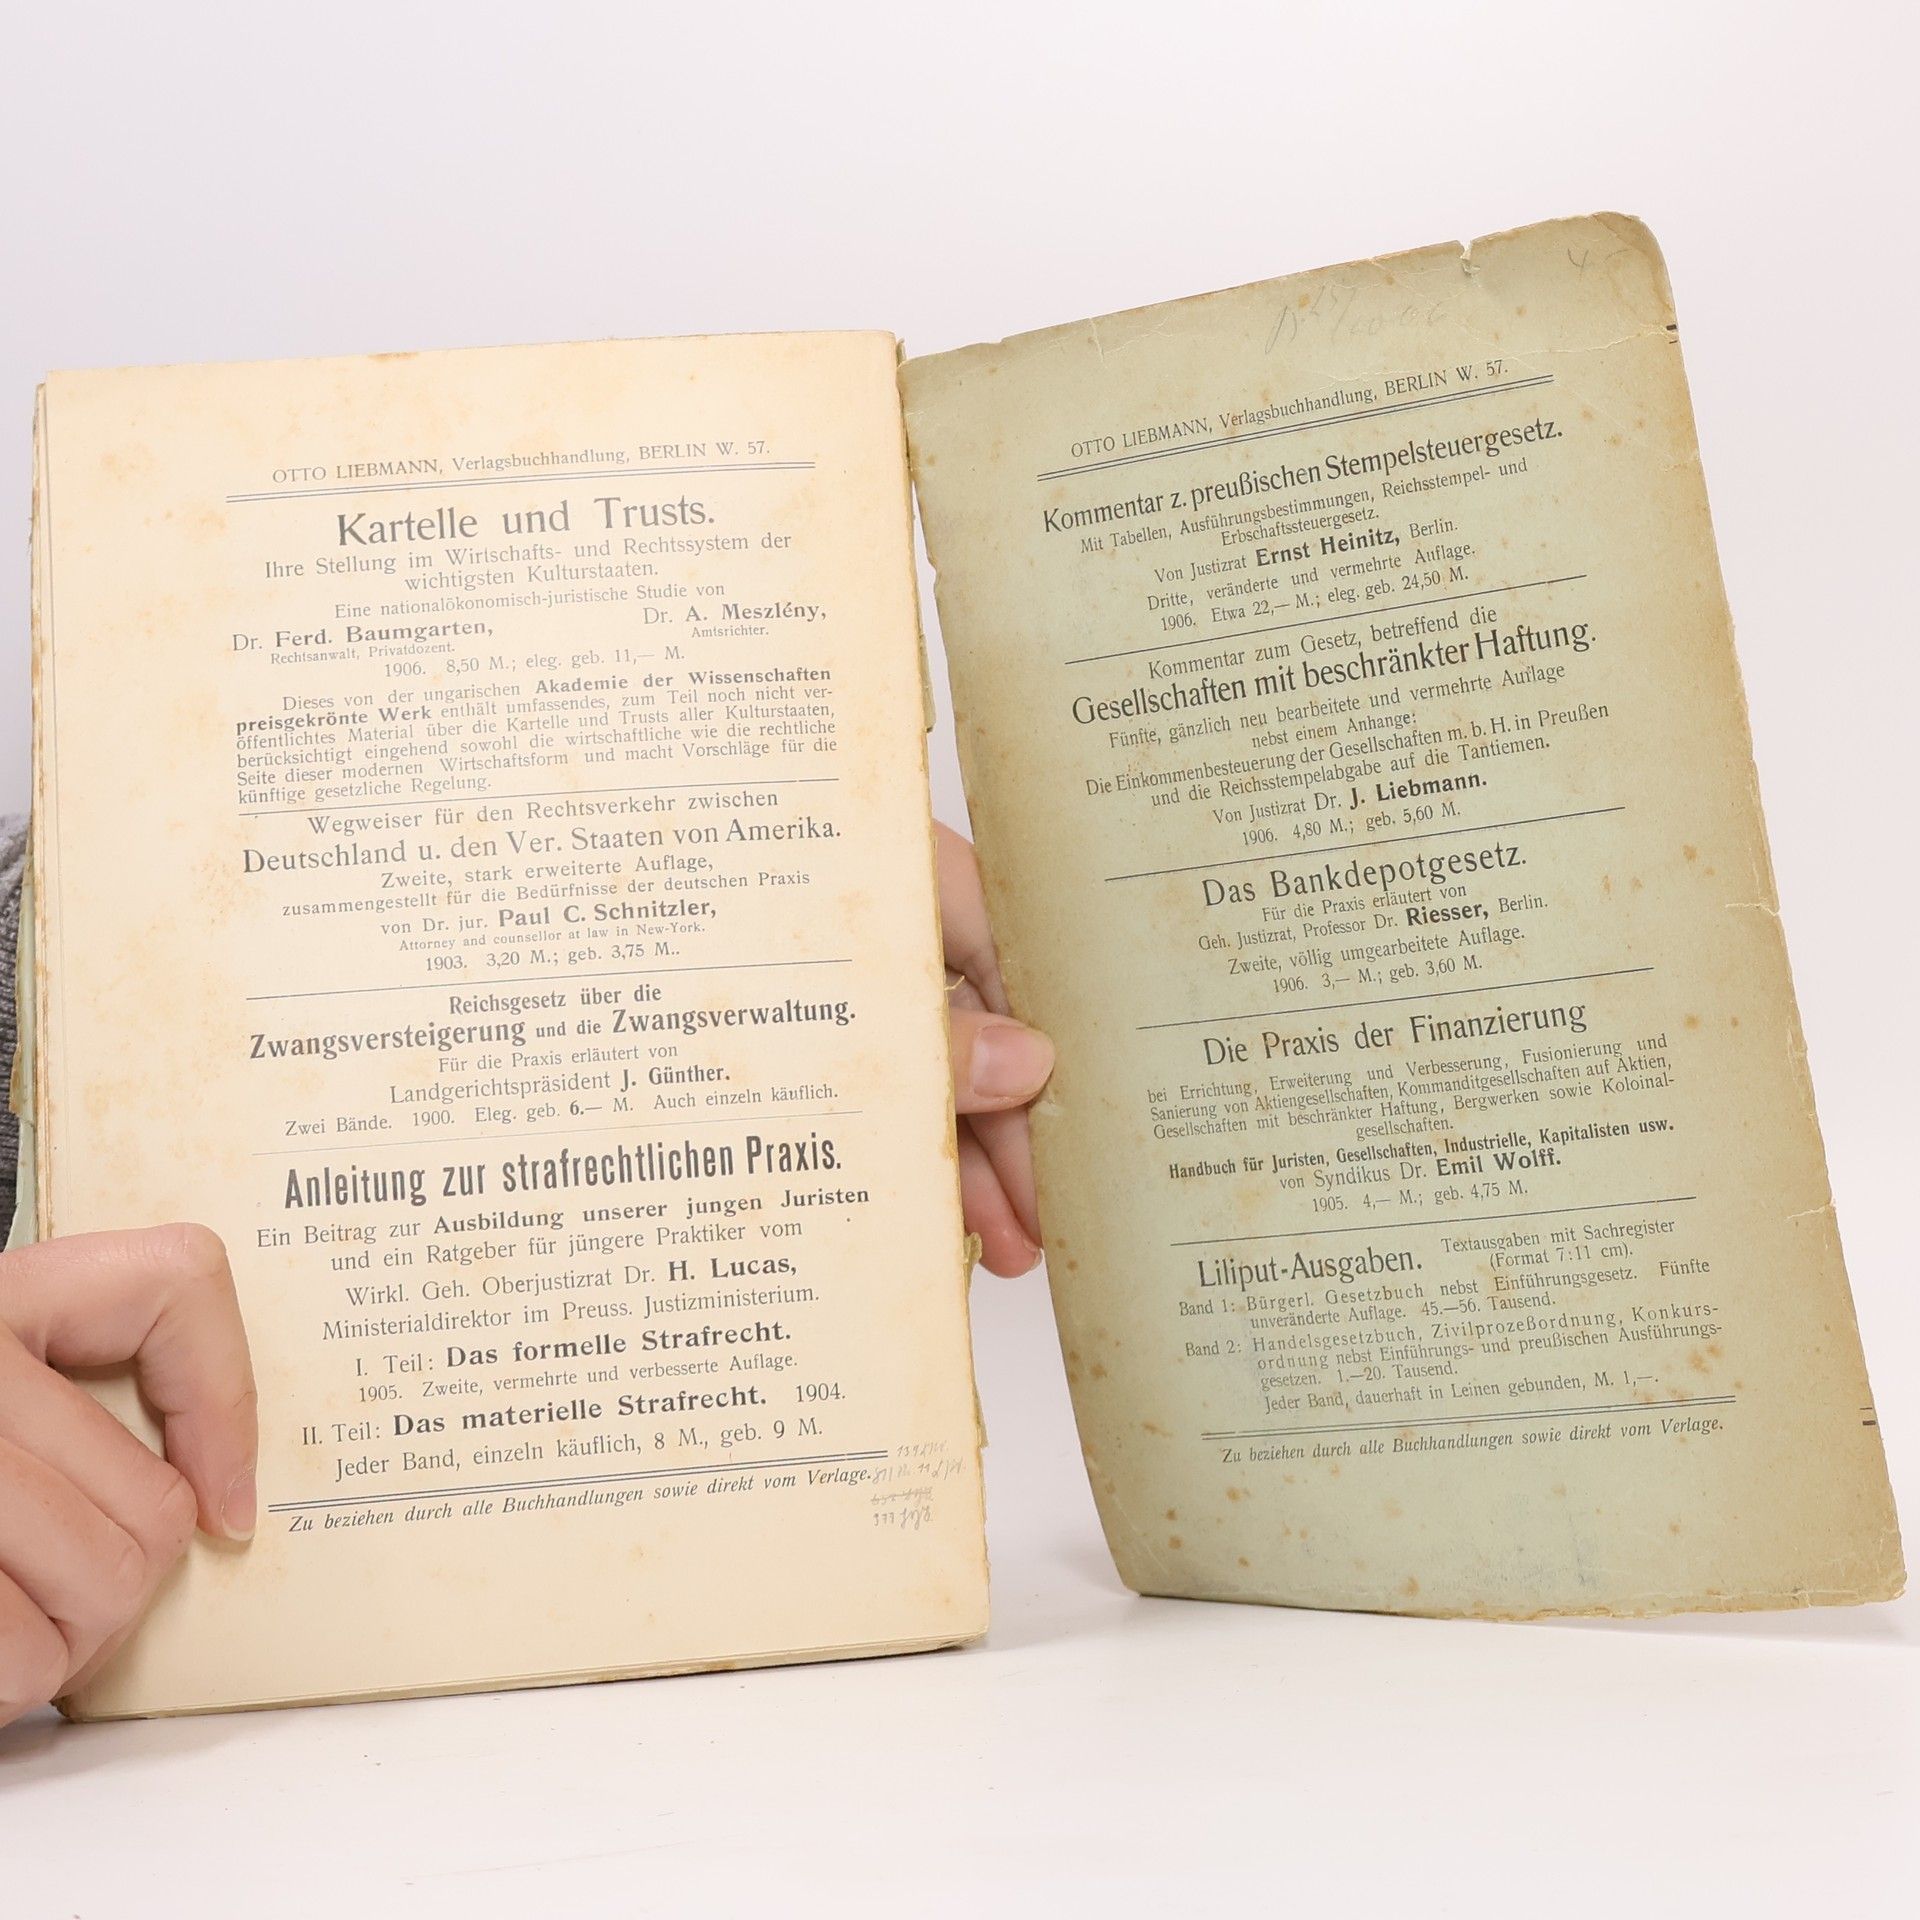 OTTO LIEBMANN, Verlagsbuchhandlung, BERLIN W. 57.
Kartelle und Trusts.
Ihre Stellung im Wirtschafts- und Rechtssystem der
wichtigsten Kulturstaaten.
Eine nationalökonomisch-juristische Studie von
Dr. Ferd. Baumgarten, Dr. A. Meszlény,
Rechtsanwalt, Privatdozent. Amtsrichter.
1906. 8,50 M.; eleg. geb. 11,— M.
Dieses von der ungarischen Akademie der Wissenschaften
preisgekrönte Werk enthält umfassendes, zum Teil noch nicht ver-
öffentlichtes Material über die Kartelle und Trusts aller Kulturstaaten,
berücksichtigt eingehend sowohl die wirtschaftliche wie die rechtliche
Seite dieser modernen Wirtschaftsform und macht Vorschläge für die
künftige gesetzliche Regelung.
Wegweiser für den Rechtsverkehr zwischen
Deutschland u. den Ver. Staaten von Amerika.
Zweite, stark erweiterte Auflage,
zusammengestellt für die Bedürfnisse der deutschen Praxis
von Dr. jur. Paul C. Schnitzler,
Attorney and counsellor at law in New-York.
1903. 3,20 M.; geb. 3,75 M..
Reichsgesetz über die
Zwangsversteigerung und die Zwangsverwaltung.
Für die Praxis erläutert von
Landgerichtspräsident J. Günther.
Zwei Bände. 1900. Eleg. geb. 6.— M. Auch einzeln käuflich.
Anleitung zur strafrechtlichen Praxis.
Ein Beitrag zur Ausbildung unserer jungen Juristen
und ein Ratgeber für jüngere Praktiker vom
Wirkl. Geh. Oberjustizrat Dr. H. Lucas,
Ministerialdirektor im Preuss. Justizministerium.
I. Teil: Das formelle Strafrecht.
1905. Zweite, vermehrte und verbesserte Auflage.
II. Teil: Das materielle Strafrecht. 1904.
Jeder Band, einzeln käuflich, 8 M., geb. 9 M.
Zu beziehen durch alle Buchhandlungen sowie direkt vom Verlage.
4 –
OTTO LIEBMANN, Verlagsbuchhandlung, BERLIN W. 57.
Kommentar z. preußischen Stempelsteuergesetz.
Mit Tabellen, Ausführungsbestimmungen, Reichsstempel- und
Erbschaftssteuergesetz.
Von Justizrat Ernst Heinitz, Berlin.
Dritte, veränderte und vermehrte Auflage.
1906. Etwa 22,— M.; eleg. geb. 24,50 M.
Kommentar zum Gesetz, betreffend die
Gesellschaften mit beschränkter Haftung.
Fünfte, gänzlich neu bearbeitete und vermehrte Auflage
nebst einem Anhange:
Die Einkommenbesteuerung der Gesellschaften m. b. H. in Preußen
und die Reichsstempelabgabe auf die Tantiemen.
Von Justizrat Dr. J. Liebmann.
1906. 4,80 M.; geb. 5,60 M.
Das Bankdepotgesetz.
Für die Praxis erläutert von
Geh. Justizrat, Professor Dr. Riesser, Berlin.
Zweite, völlig umgearbeitete Auflage.
1906. 3,— M.; geb. 3,60 M.
Die Praxis der Finanzierung
bei Errichtung, Erweiterung und Verbesserung, Fusionierung und
Sanierung von Aktiengesellschaften, Kommanditgesellschaften auf Aktien,
Gesellschaften mit beschränkter Haftung, Bergwerken sowie Koloinal-
gesellschaften.
Handbuch für Juristen, Gesellschaften, Industrielle, Kapitalisten usw.
von Syndikus Dr. Emil Wolff.
1905. 4,— M.; geb. 4,75 M.
Liliput-Ausgaben. Textausgaben mit Sachregister
(Format 7:11 cm).
Band 1: Bürgerl. Gesetzbuch nebst Einführungsgesetz. Fünfte
unveränderte Auflage. 45.—56. Tausend.
Band 2: Handelsgesetzbuch, Zivilprozeßordnung, Konkurs-
ordnung nebst Einführungs- und preußischen Ausführungs-
gesetzen. 1.—20. Tausend.
Jeder Band, dauerhaft in Leinen gebunden, M. 1,—.
Zu beziehen durch alle Buchhandlungen sowie direkt vom Verlage.